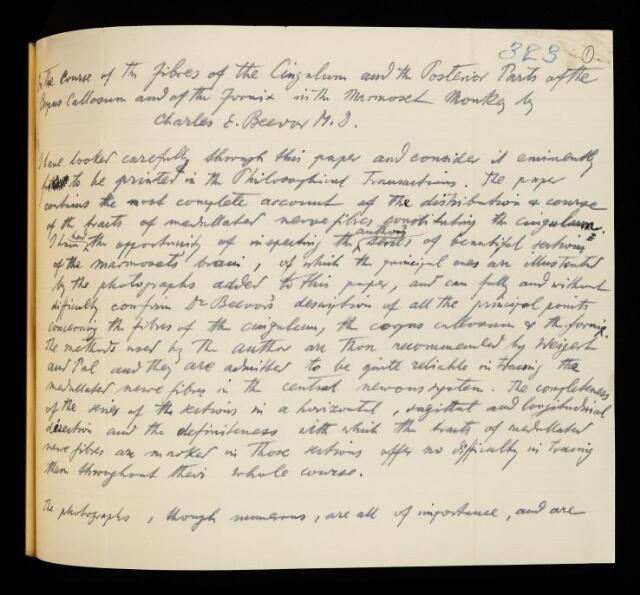 323 1
On The Course of the fibres of the Cingulum and the Posterior Parts of the
Corpus Callosum and of the Fornix in the Marmoset Monkey by
Charles E. Beevor M.D.
I have looked carefully through this paper and consider it eminently
fit to be printed in the Philosophical Transactions. The paper
contains the most complete account of the distribution & course
of the tracts of medullated nerve fibres constituting the cingulum.
I have had the opportunity of inspecting the author's series of beautiful sections
of the marmoset's brain, of which the principal ones are illustrated
by the photographs added to this paper, and can fully and without
difficulty confirm Dr Beevor's description of all the principal points
concerning the fibres of the cingulum, the corpus callosum & the fornix.
The methods used by the author are those recommended by Weigert
and Pal and they are admitted to be quite reliable in tracing the
medullated nerve fibres in the central nervous system. The completeness
of the series of the sections in a horizontal, sagittal and longitudinal
direction and the definiteness with which the tracts of medullated
nerve fibres are marked in those sections offer no difficulty in tracing
them throughout their whole course.
The photographs, though numerous, are all of importance, and are